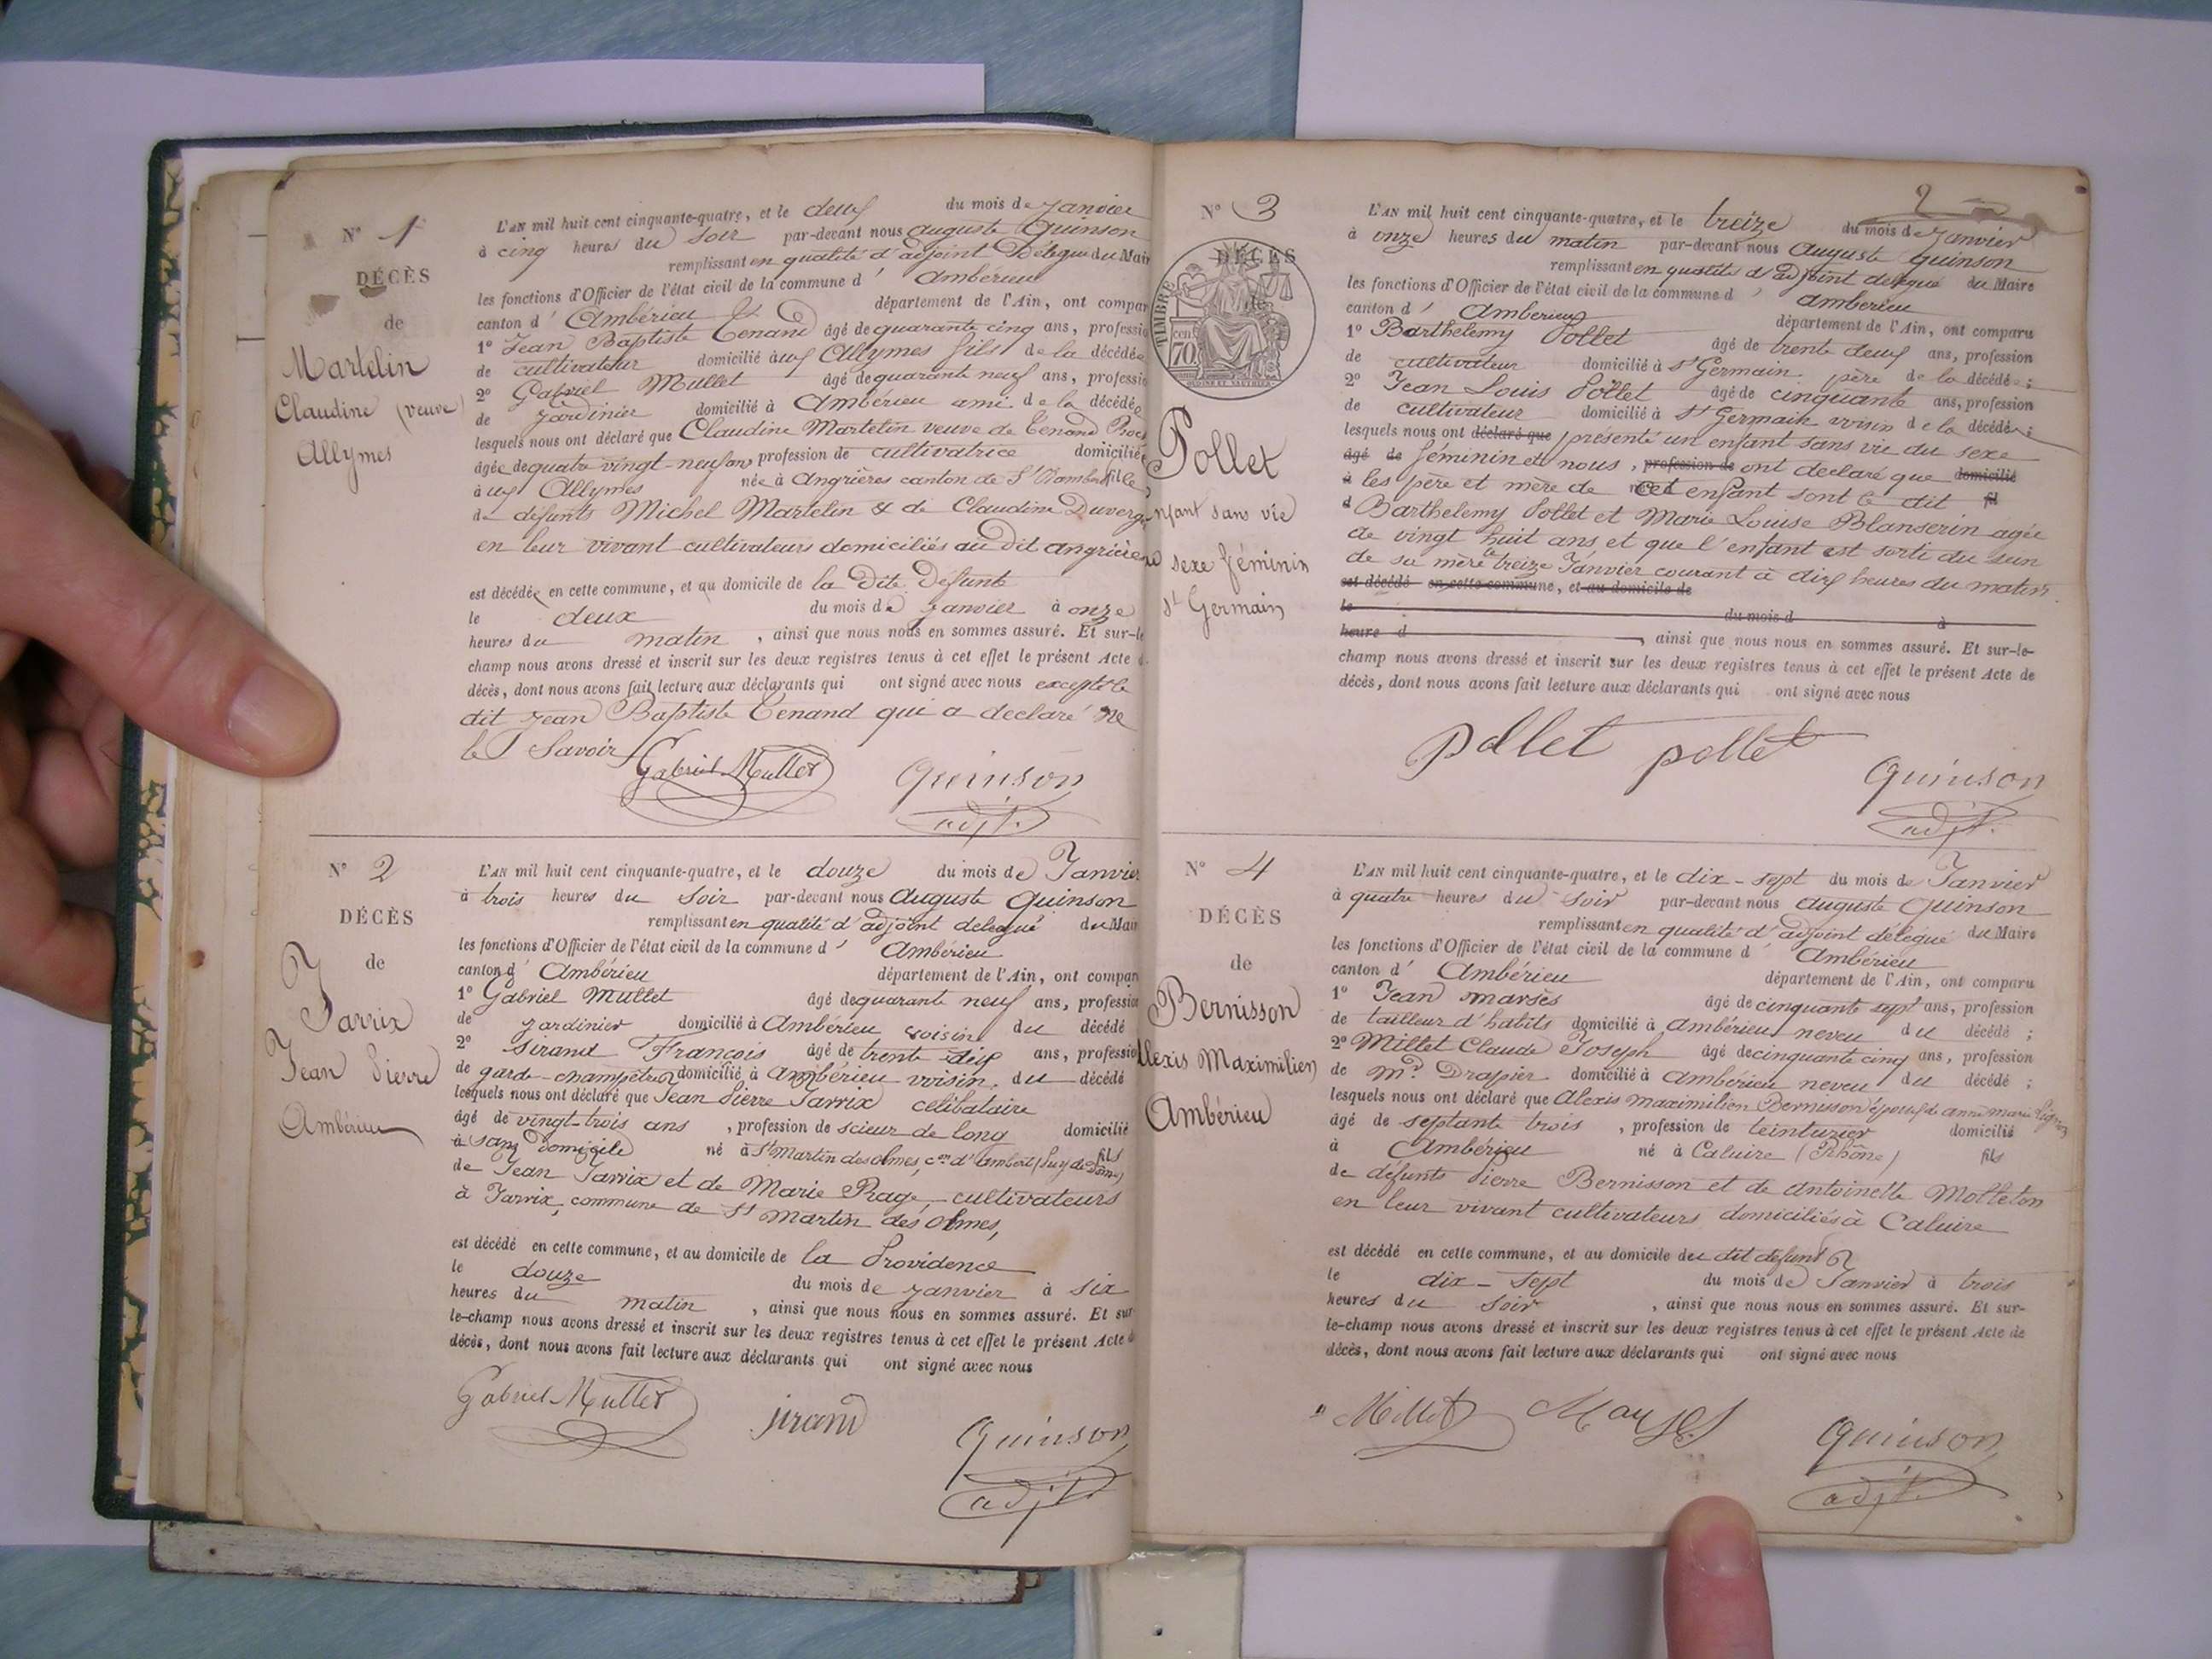 N° 1
DÉCÈS
de
Martelin
Claudine (veuve)
Allymes
L'AN mil huit cent cinquante-quatre, et le deux du mois de Janvier
à cinq heures du soir par-devant nous Auguste Quinson
remplissant en qualité d'adjoint Délégué du Mair
les fonctions d'Officier de l'état civil de la commune d' Ambérieu
canton d' Ambérieu département de l'Ain, ont compar
1° Jean Baptiste Tenand âgé de quarante cinq ans, professio
de cultivateur domicilié aux Allymes fils de la décédée
2° Gabriel Mullet âgé de quarante neuf ans, professio
de Jardinier domicilié à Ambérieu ami de la décédée
lesquels nous ont déclaré que Claudine Martelin veuve de Tenand
âgée de quatre-vingt-neuf ans profession de cultivatrice domiciliée
aux Allymes née à Angrières canton de St Rambert fille
de défunts Michel Martelin & de Claudine
en leur vivant cultivateurs domiciliés au dit angrières
est décédée en cette commune, et au domicile de la Dite Défunte
le deux du mois de Janvier à onze
heures du matin, ainsi que nous nous en sommes assuré. Et sur-le
champ nous avons dressé et inscrit sur les deux registres tenus à cet effet le présent Acte d
décès, dont nous avons fait lecture aux déclarants qui ont signé avec nous excepté le
dit Jean Baptiste Tenand qui a declaré ne
le Savoir
Gabriel Mullet Quinson
adjt.
N° 2
DÉCÈS
de
Jarrix
Jean Pierre
Ambérieu
L'AN mil huit cent cinquante-quatre, et le douze du mois de Janvier
à trois heures du soir par-devant nous Auguste Quinson
remplissant en qualité d'adjoint délégué du Mair
les fonctions d'Officier de l'état civil de la commune d' Ambérieu
canton d' Ambérieu département de l'Ain, ont compar
1° Gabriel Mullet âgé de quarante neuf ans, profession
de Jardinier domicilié à Ambérieu voisin du décédé
2° Sirand François âgé de trente dix ans, profession
de garde-champêtre domicilié à Ambérieu voisin du décédé
lesquels nous ont déclaré que Jean Pierre Jarrix celibataire
âgé de vingt-trois ans, profession de scieur de long domicilié
à sans domicile né à St Martin des olmes, con d'ambert (Puy de Dôme) fils
de Jean Jarrix et de Marie Prage, cultivateurs
à Jarrix, commune de St Martin des Olmes,
est décédé en cette commune, et au domicile de la Providence
le douze du mois de Janvier à six
heures du matin, ainsi que nous nous en sommes assuré. Et sur
le-champ nous avons dressé et inscrit sur les deux registres tenus à cet effet le présent Acte d
décès, dont nous avons fait lecture aux déclarants qui ont signé avec nous
Gabriel Mullet sirand Quinson
adjt.
2
N° 3
DÉCÈS
de
TIMBRE
70 cen
Pollet
enfant sans vie
sexe féminin
St Germain
L'AN mil huit cent cinquante-quatre, et le treize du mois de Janvier
à onze heures du matin par-devant nous Auguste Quinson
remplissant en qualité d'adjoint délégué du Maire
les fonctions d'Officier de l'état civil de la commune d' Ambérieu
canton d' Ambérieu département de l'Ain, ont comparu
1° Barthelemy Pollet âgé de trente deux ans, profession
de cultivateur domicilié à St Germain père de la décédée;
2° Jean Louis Pollet âgé de cinquante ans, profession
de cultivateur domicilié à St Germain voisin de la décédée;
lesquels nous ont déclaré que présenté un enfant sans vie du sexe
âgé de féminin et nous, profession de ont déclaré que domicilié
à les père et mère de cet enfant sont le dit fil
d Barthelemy Pollet et Marie Louise Blanserin agée
de vingt huit ans et que l'enfant est sorti du sein
de sa mère le treize Janvier courant à dix heures du matin.
est décédé en cette commune, et au domicile de
le du mois d à
heure d, ainsi que nous nous en sommes assuré. Et sur-le-
champ nous avons dressé et inscrit sur les deux registres tenus à cet effet le présent Acte de
décès, dont nous avons fait lecture aux déclarants qui ont signé avec nous
pollet pollet
Quinson
adjt.
N° 4
DÉCÈS
de
Bernisson
Alexis Maximilien
Ambérieu
L'AN mil huit cent cinquante-quatre, et le dix-sept du mois de Janvier
à quatre heures du soir par-devant nous Auguste Quinson
remplissant en qualité d'adjoint délégué du Maire
les fonctions d'Officier de l'état civil de la commune d' Ambérieu
canton d' Ambérieu département de l'Ain, ont comparu
1° Jean marsès âgé de cinquante sept ans, profession
de tailleur d'habits domicilié à Ambérieu neveu du décédé;
2° Millet Claude Joseph âgé de cinquante cinq ans, profession
de Md Drapier domicilié à Ambérieu neveu du décédé;
lesquels nous ont déclaré que Alexis maximilien Bernisson époux de anne marie
âgé de septante trois, profession de teinturier domicilié
à Ambérieu né à Caluire (Rhône) fils
de défunts Pierre Bernisson et de Antoinette Molleton
en leur vivant cultivateurs domiciliés à Caluire
est décédé en cette commune, et au domicile du dit défunt
le dix-sept du mois de Janvier à trois
heures du soir, ainsi que nous nous en sommes assuré. Et sur-
le-champ nous avons dressé et inscrit sur les deux registres tenus à cet effet le présent Acte de
décès, dont nous avons fait lecture aux déclarants qui ont signé avec nous
Millet Marses Quinson
adjt.